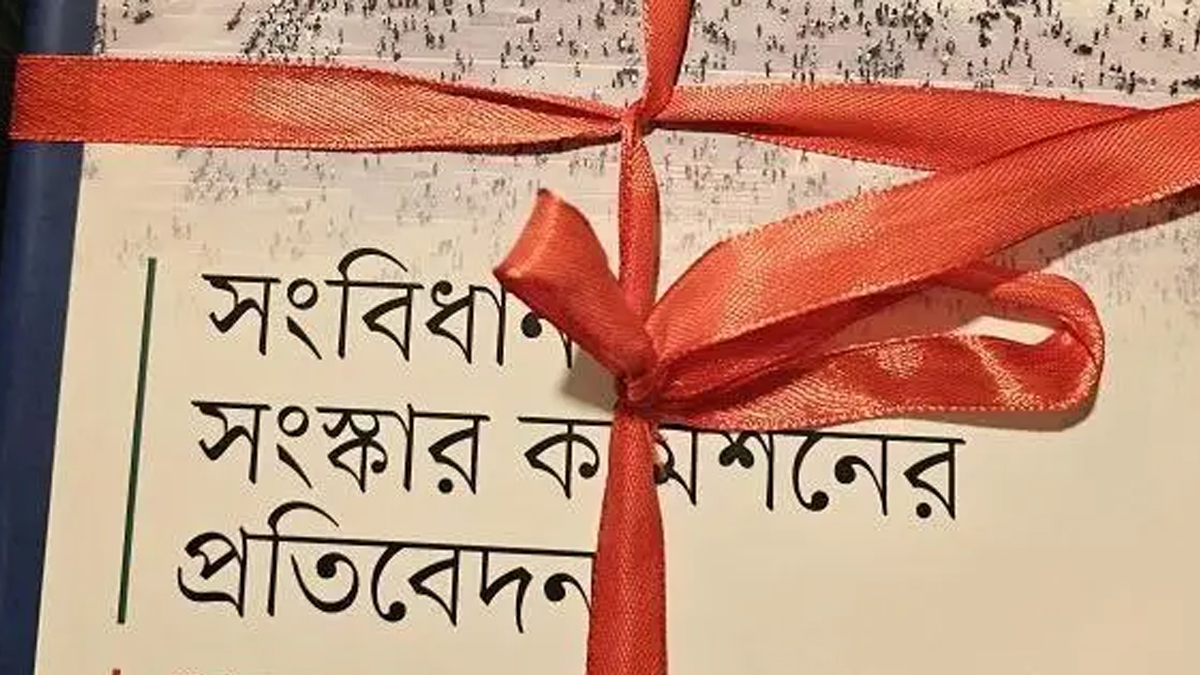 সংবিধান
সংস্কার কমিশনের
প্রতিবেদন